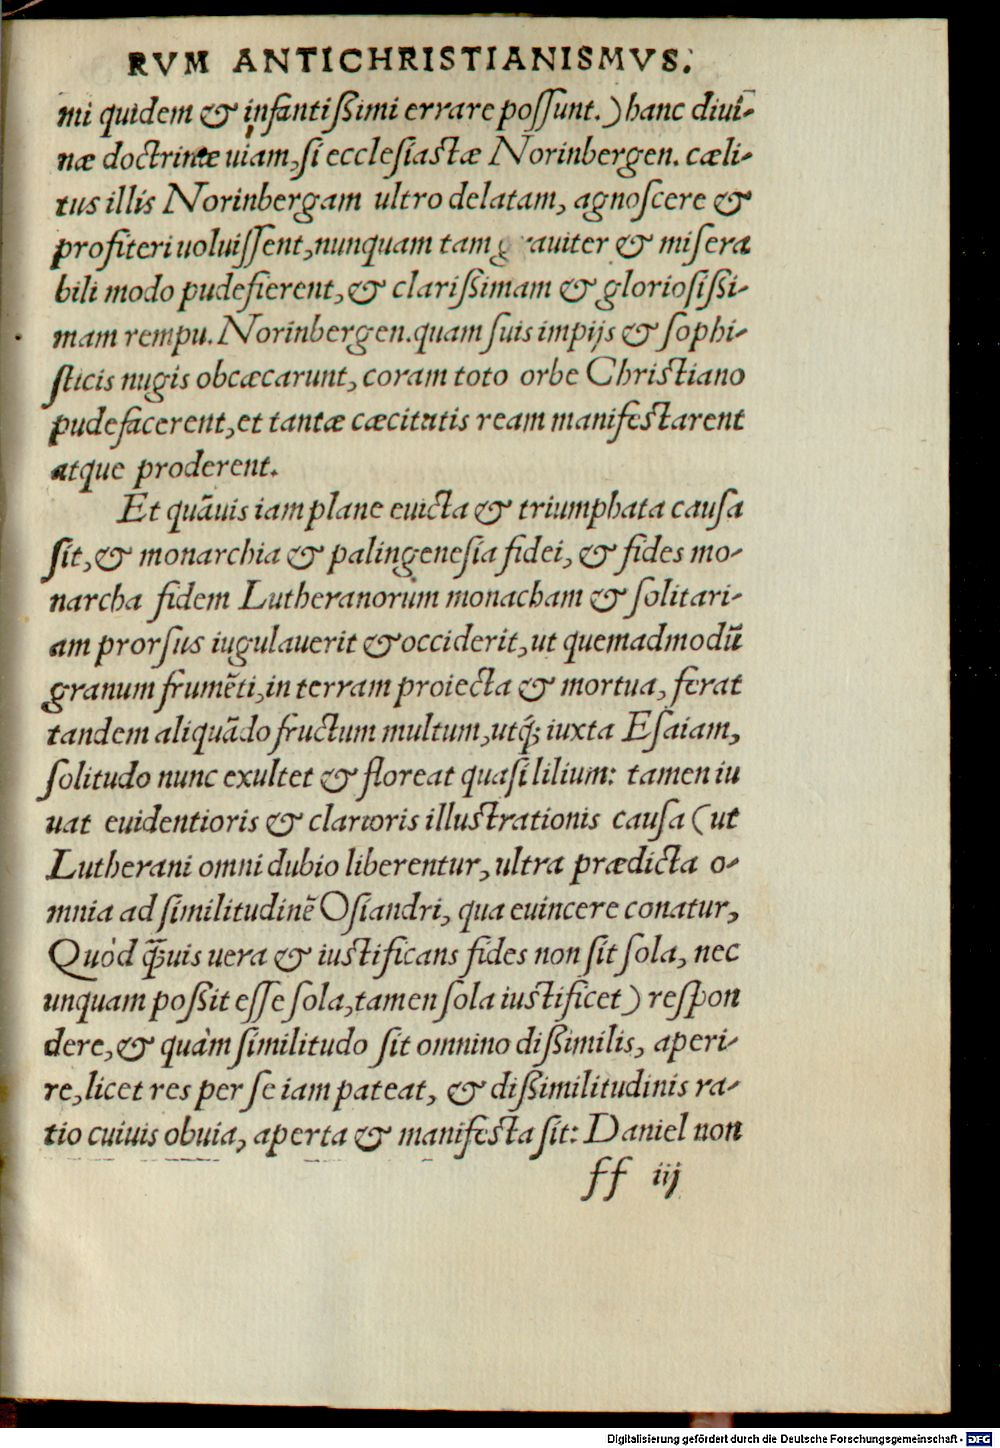 RVM ANTICHRISTIANISMVS.
mi quidem & infantißimi errare poſſunt.) hanc diui-
næ doctrinæ uiam, ſi eccleſiaſtæ Norinbergen. cæli-
tus illis Norinbergam ultro delatam, agnoſcere &
profiteri uoluiſſent, nunquam tam grauiter & miſera
bili modo pudefierent, & clarißimam & glorioſißi-
mam rempu. Norinbergen. quam ſuis impijs & ſophi-
ſticis nugis obcæcarunt, coram toto orbe Chriſtiano
pudefacerent, et tantæ cæcitatis ream manifeſtarent
atque proderent.
Et quãuis iam plane euicta & triumphata cauſa
ſit, & monarchia & palingeneſia fidei, & fides mo-
narcha fidem Lutheranorum monacham & ſolitari-
am prorſus iugulauerit & occiderit, ut quemadmodũ
granum frumẽti, in terram proiecta & mortua, ferat
tandem aliquãdo fructum multum, utq́; iuxta Eſaiam,
ſolitudo nunc exultet & floreat quaſi lilium: tamen iu
uat euidentioris & clarioris illuſtrationis cauſa (ut
Lutherani omni dubio liberentur, ultra prædicta o-
mnia ad ſimilitudinẽ Oſiandri, qua euincere conatur,
Quòd q̃uis uera & iuſtificans fides non ſit ſola, nec
unquam poßit eſſe ſola, tamen ſola iuſtificet) reſpon
dere, & quàm ſimilitudo ſit omnino dißimilis, aperi-
re, licet res per ſe iam pateat, & dißimilitudinis ra-
tio cuiuis obuia, aperta & manifeſta ſit: Daniel non
ff iij
Digitalisierung gefördert durch die Deutsche Forschungsgemeinschaft - DFG